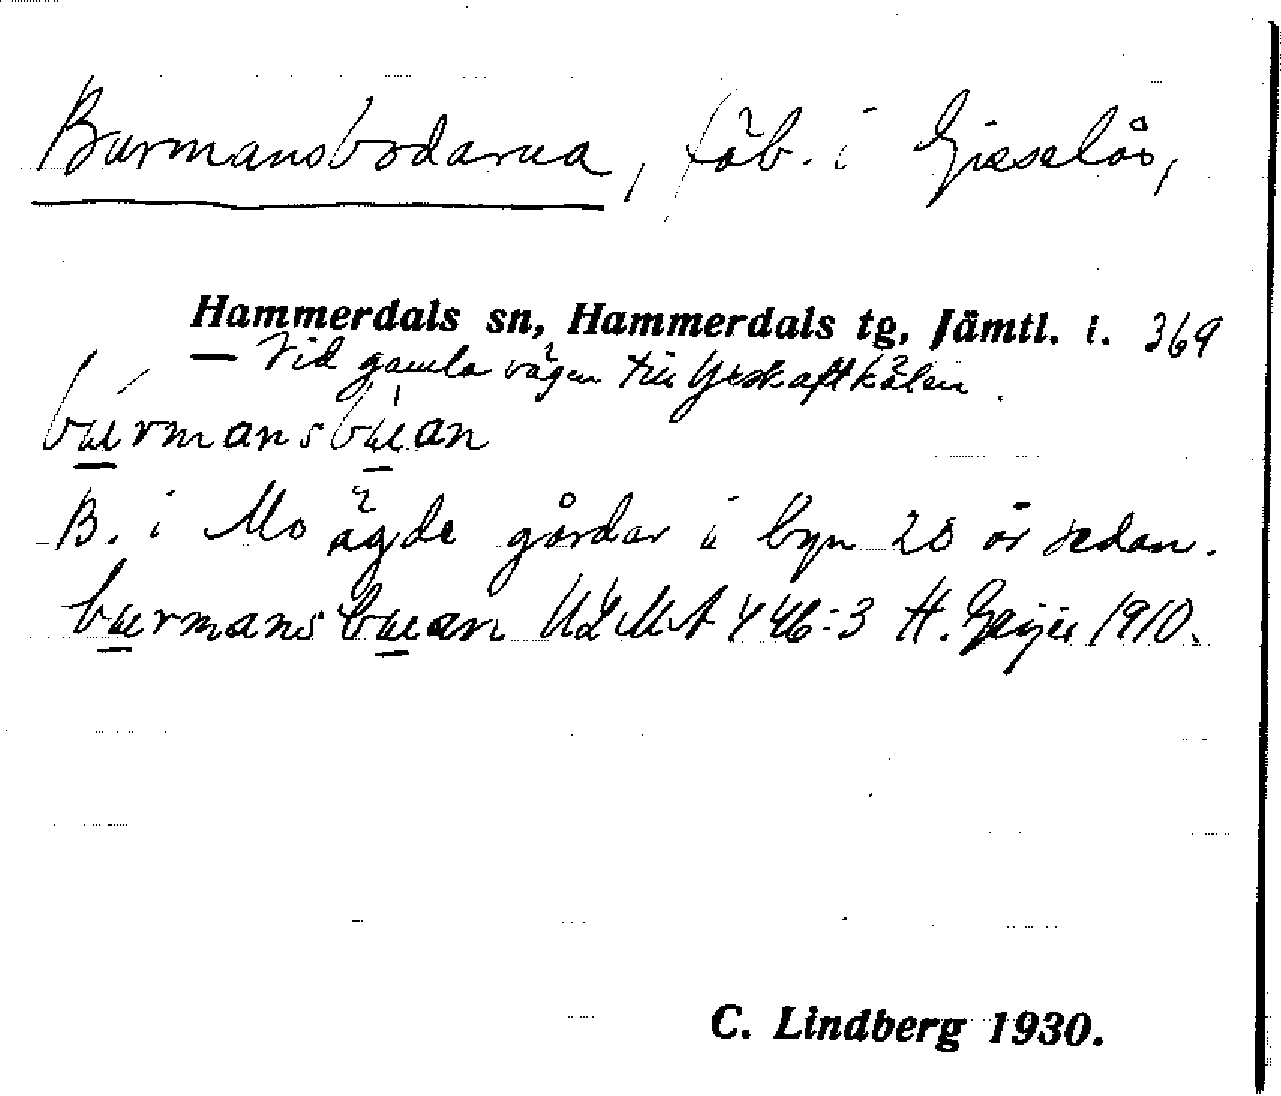 Burmansbodarna, fäb. i Gisselås,
Hammerdals sn, Hammerdals tg, Jämtl. l. 369
— Vid gamla vägen till Yxskaftkälen.
búrmansbùan
B. i Mo ägde gårdar i byn 28 år sedan.
burmansbuan ULMA 446:3 H. Geijer 1910.
C. Lindberg 1930.